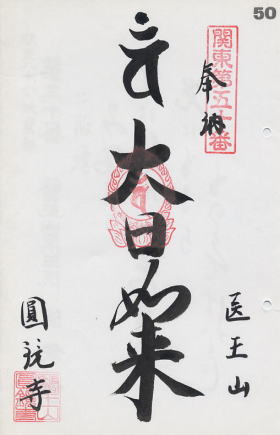 50
関東第五十番
奉納
大日如来
医王山
圓珖寺